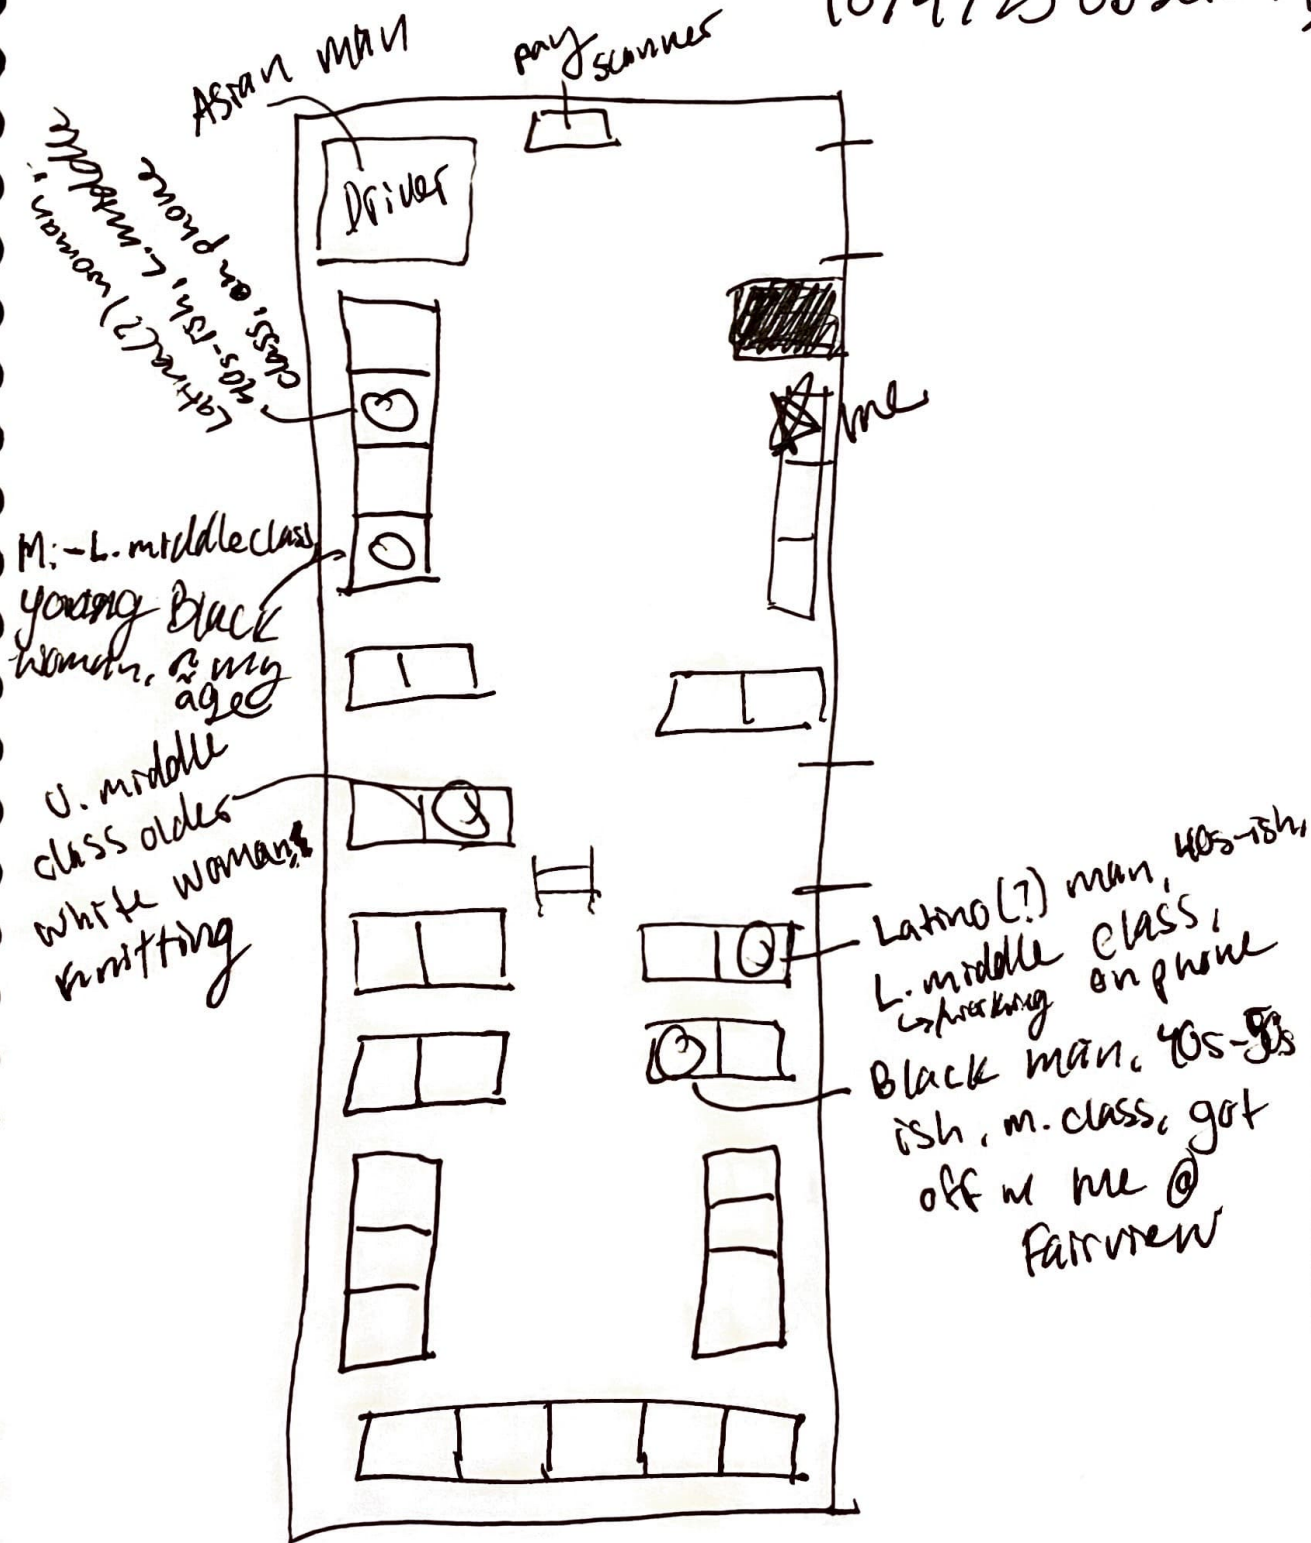 10/9/25
Asian man
pay
scanner
Driver
Latina(?) woman,
40s-ish, L. middle
class, on phone
me
M.-L. middle class
young Black
woman, ~ my
age
U. middle
class older
white woman,
knitting
Latino(?) man, 40s-ish,
L. middle class,
↳ working on phone
Black man, 40s-50s
ish, m. class, got
off w me @
Fairview